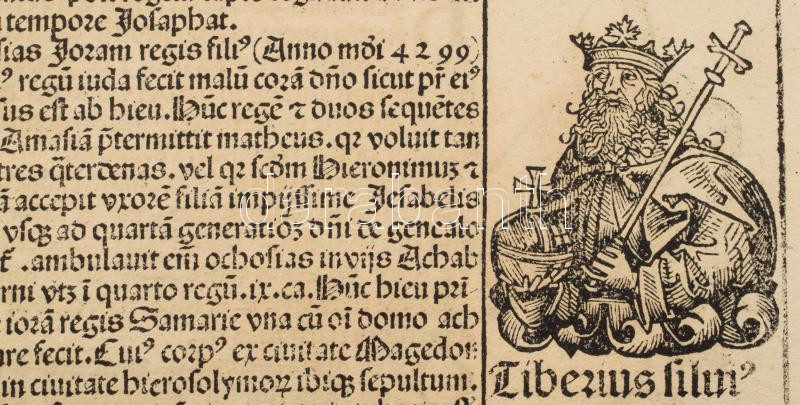 u tempore Josaphat.
sias Joram regis filiꝰ (Anno mũdi 4299)
ꝰ regũ iuda fecit malũ corã dño sicut pr̃ eiꝰ
sus est ab hieu. Hũc regẽ ⁊ duos sequẽtes
Amasiã p̃termittit matheus. qr voluit tan
tres q̃terdenas. vel qr scd̃m Hieronimuʒ ⁊
ã accepit vxorẽ filiã impijssime Jesabelis
vsqꝫ ad quartã generatiõʒ dñi de genealo
. ambulauit em̃ ochosias in vijs Achab
erni vtʒ ĩ quarto regũ. ix. ca. Hũc hieu pri
e iorã regis Samarie vna cũ oĩ domo ach
are fecit. Cuiꝰ corpꝰ ex ciuitate Magedon
in ciuitate hierosolymoꝝ ibiqꝫ sepultum.
Tiberius siluiꝰ
darabanth